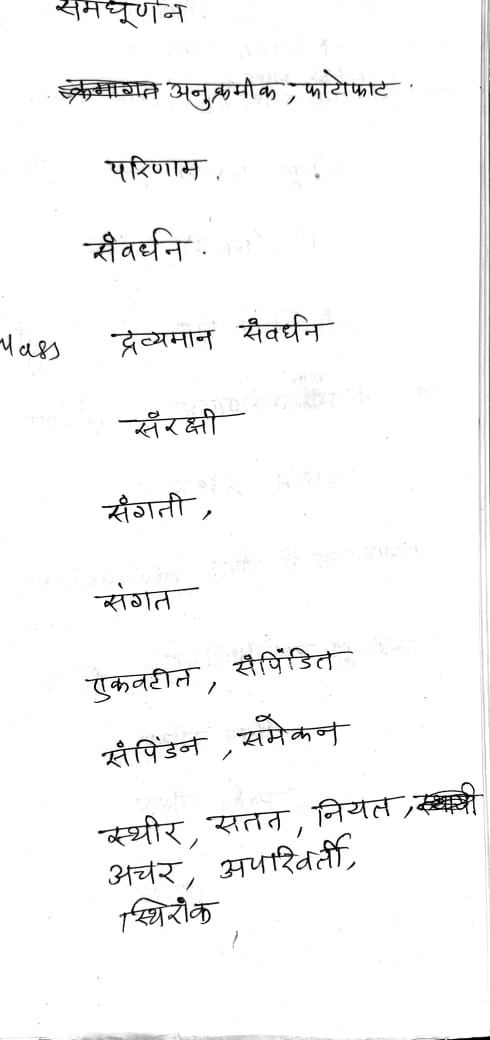 समघूर्णन
अनुक्रमीक, काटोकाट
परिणाम.
संवर्धन.
Mass द्रव्यमान संवर्धन
संरक्षी
संगती,
संगत
एकवटीत, संपिंडित
संपिंडन, समेकन
स्थीर, सतत, नियत,
अचर, अपरिवर्ती,
स्थिरांक